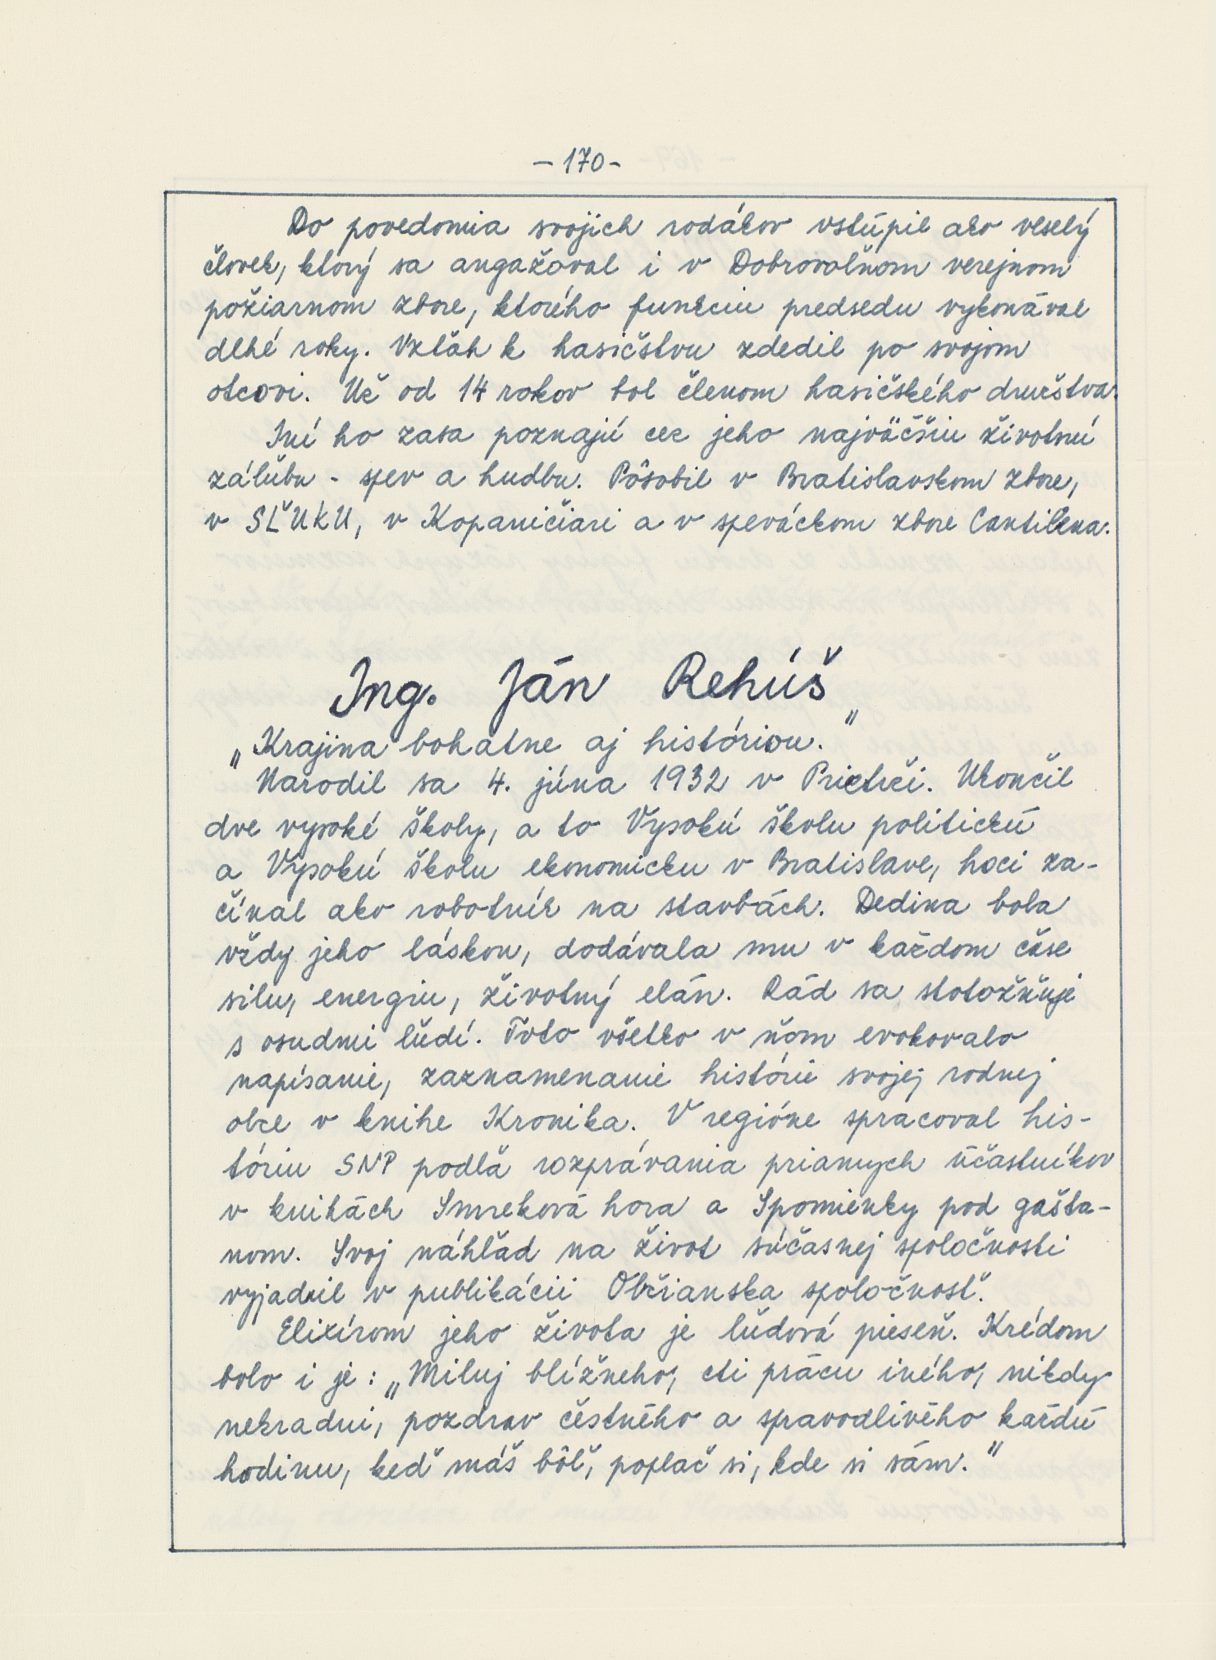 - 170 -
Do povedomia svojich rodákov vstúpil ako veselý
človek, ktorý sa angažoval i v Dobrovoľnom verejnom
požiarnom zbore, ktorého funkciu predsedu vykonával
dlhé roky. Vzťah k hasičstvu zdedil po svojom
otcovi. Už od 14 rokov bol členom hasičského družstva.
Iní ho zasa poznajú cez jeho najväčšiu životnú
záľubu - spev a hudbu. Pôsobil v Bratislavskom zbore,
v SĽUKU, v Kopaničiari a v speváckom zbore Cantilena.
Ing. Ján Rehúš
„Krajina bohatne aj históriou."
Narodil sa 4. júna 1932 v Prietrži. Ukončil
dve vysoké školy, a to Vysokú školu politickú
a Vysokú školu ekonomicku v Bratislave, hoci za-
čínal ako robotník na stavbách. Dedina bola
vždy jeho láskou, dodávala mu v každom čase
silu, energiu, životný elán. Rád sa stotožňuje
s osudmi ľudí. Toto všetko v ňom evokovalo
napísanie, zaznamenanie histórie svojej rodnej
obce v knihe Kronika. V regióne spracoval his-
tóriu SNP podľa rozprávania priamych účastníkov
v knihách Smreková hora a Spomienky pod gašta-
nom. Svoj náhľad na život súčasnej spoločnosti
vyjadril v publikácii Občianska spoločnosť.
Elixírom jeho života je ľudová pieseň. Krédom
bolo i je: „Miluj blížneho, cti prácu iného, nikdy
nekradni, pozdrav čestného a spravodlivého každú
hodinu, keď máš bôľ, poplač si, kde si sám."